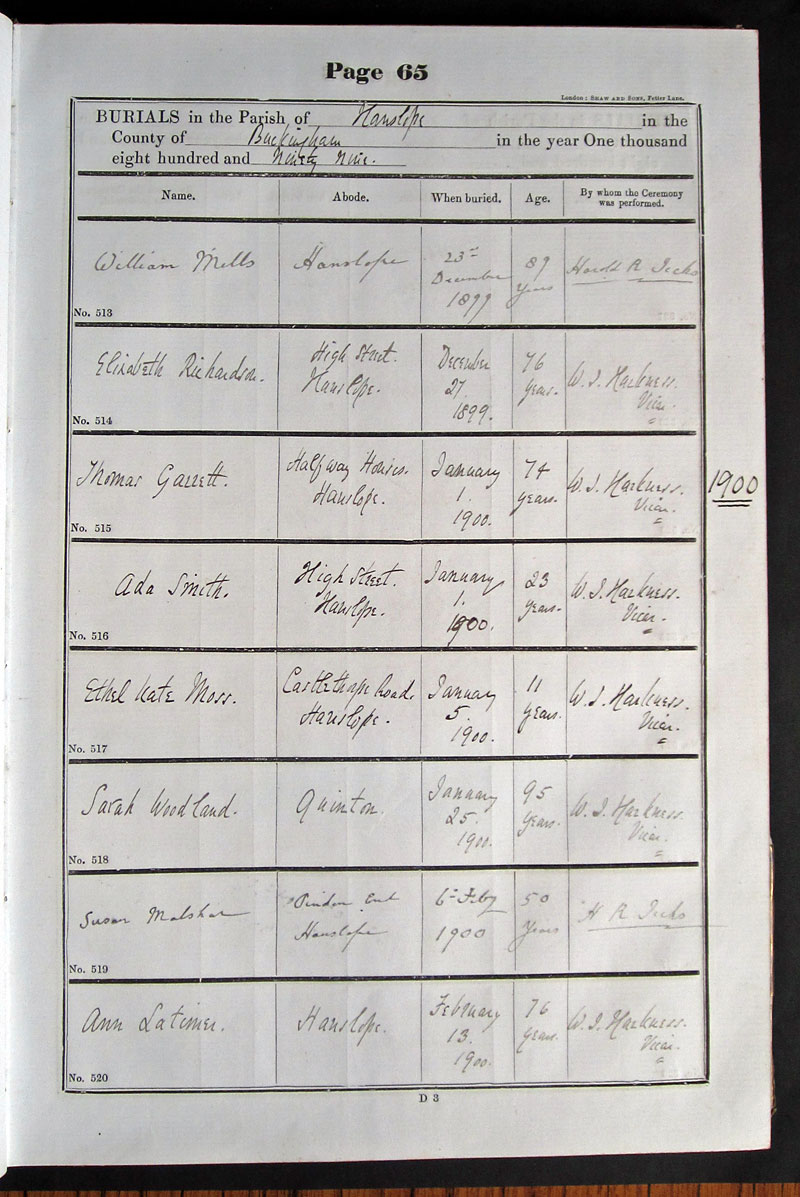 Page 65
London: SHAW AND SONS, Fetter Lane.
BURIALS in the Parish of Hanslope in the
County of Buckingham in the year One thousand
eight hundred and Ninety Nine.
Name. Abode. When buried. Age. By whom the Ceremony
was performed.
William Mills Hanslope 23rd December 1899 89 Years Harold R Jecks
No. 513
Elizabeth Richardson. High Street. Hanslope. December 27 1899. 76 Years. W. J. Harkness. Vicar.
No. 514
Thomas Garrett. Halfway Houses. Hanslope. January 1. 1900. 74 years. W. J. Harkness. Vicar.
1900
No. 515
Ada Smith. High Street. Hanslope. January 1. 1900. 23 Years. W. J. Harkness. Vicar.
No. 516
Ethel Kate Moss. Castlethorpe Road. Hanslope. January 5. 1900. 11 Years. W. J. Harkness. Vicar.
No. 517
Sarah Woodland. Quinton. January 25. 1900. 95 Years. W. J. Harkness. Vicar.
No. 518
Susan End Hanslope 6th Feby 1900 50 Years H R Jecks
No. 519
Ann Latimer. Hanslope. February 13. 1900. 76 Years. W. J. Harkness. Vicar.
No. 520
D 3